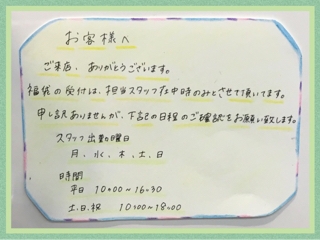 お客様へ
ご来店、ありがとうございます。
福袋の受付は、担当スタッフ在中時のみとさせて頂いてます。
申し訳ありませんが、下記の日程のご確認をお願い致します。
スタッフ出勤曜日
月、水、木、土、日
時間
平日 10:00〜16:30
土、日、祝 10:00〜18:00